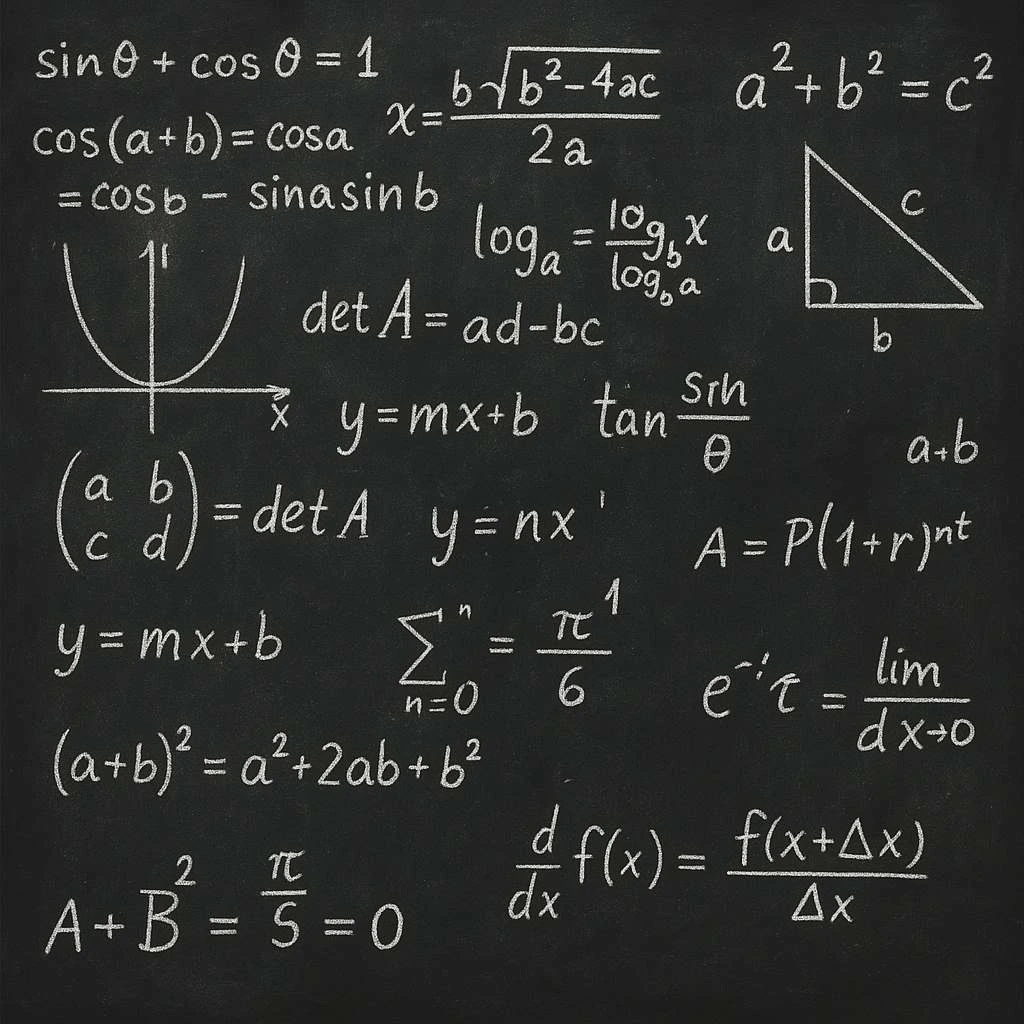 sin θ + cos θ = 1
cos(a+b) = cosa
= cosb − sinasinb
x = b√b²−4ac / 2a
a² + b² = c²
log_a = log_b x / log_b a
a
c
b
det A = ad−bc
x
y = mx+b
tan sin / θ
a+b
(a b
c d) = det A
y = nx '
A = P(1+r)ⁿᵗ
y = mx+b
∑ⁿ n=0 = π¹ / 6
e⁻ⁱτ = lim / d x→0
(a+b)² = a²+2ab+b²
d/dx f(x) = f(x+Δx) / Δx
A + B̅² = π / S = 0